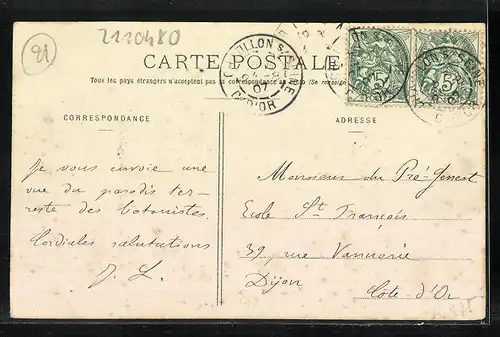 21
2110480
CARTE POSTALE
Tous les pays étrangers n'acceptent pas la correspondance au
CORRESPONDANCE
ADRESSE
Je vous envoie une
vue du paradis ter-
restre des botanistes.
Cordiales salutations
J. L.
Monsieur du Pré-Genest
Ecole St François
39, rue Vannerie
Dijon
Côte-d'Or